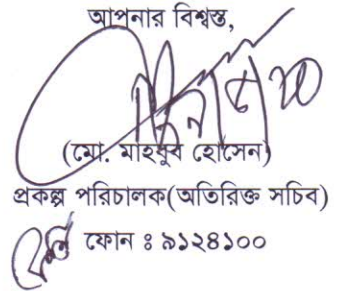 আপনার বিশ্বস্ত,
(মো. মাহবুব হোসেন)
প্রকল্প পরিচালক(অতিরিক্ত সচিব)
ফোন ঃ ৯১২৪১০০